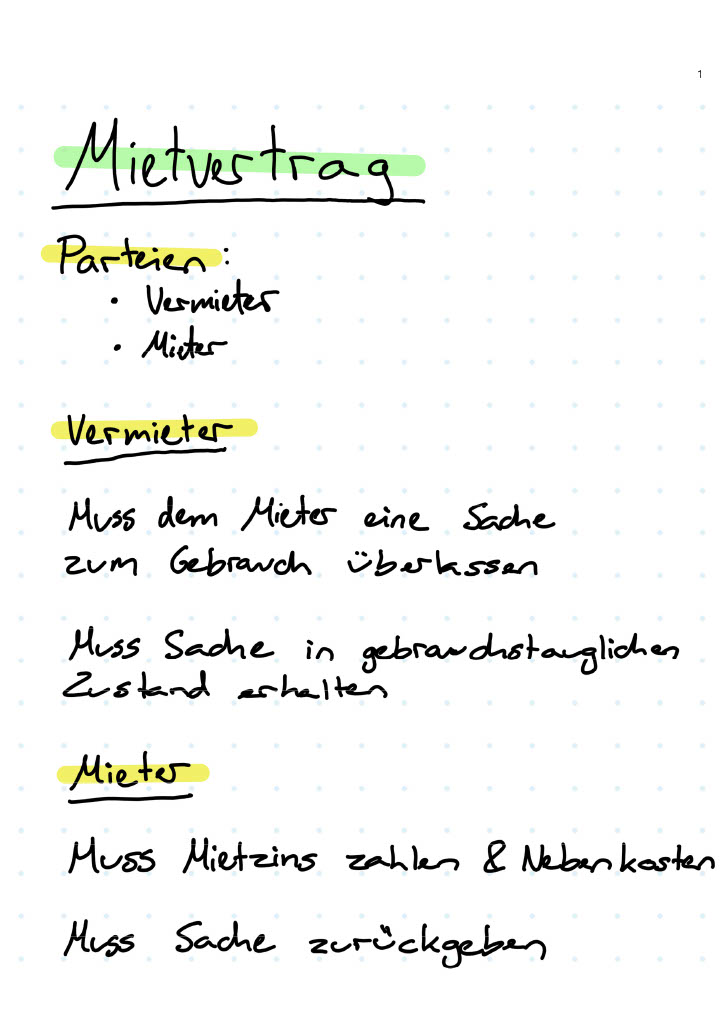 1
Mietvertrag
Parteien:
• Vermieter
• Mieter
Vermieter
Muss dem Mieter eine Sache
zum Gebrauch überlassen
Muss Sache in gebrauchstauglichen
Zustand erhalten
Mieter
Muss Mietzins zahlen & Nebenkosten
Muss Sache zurückgeben